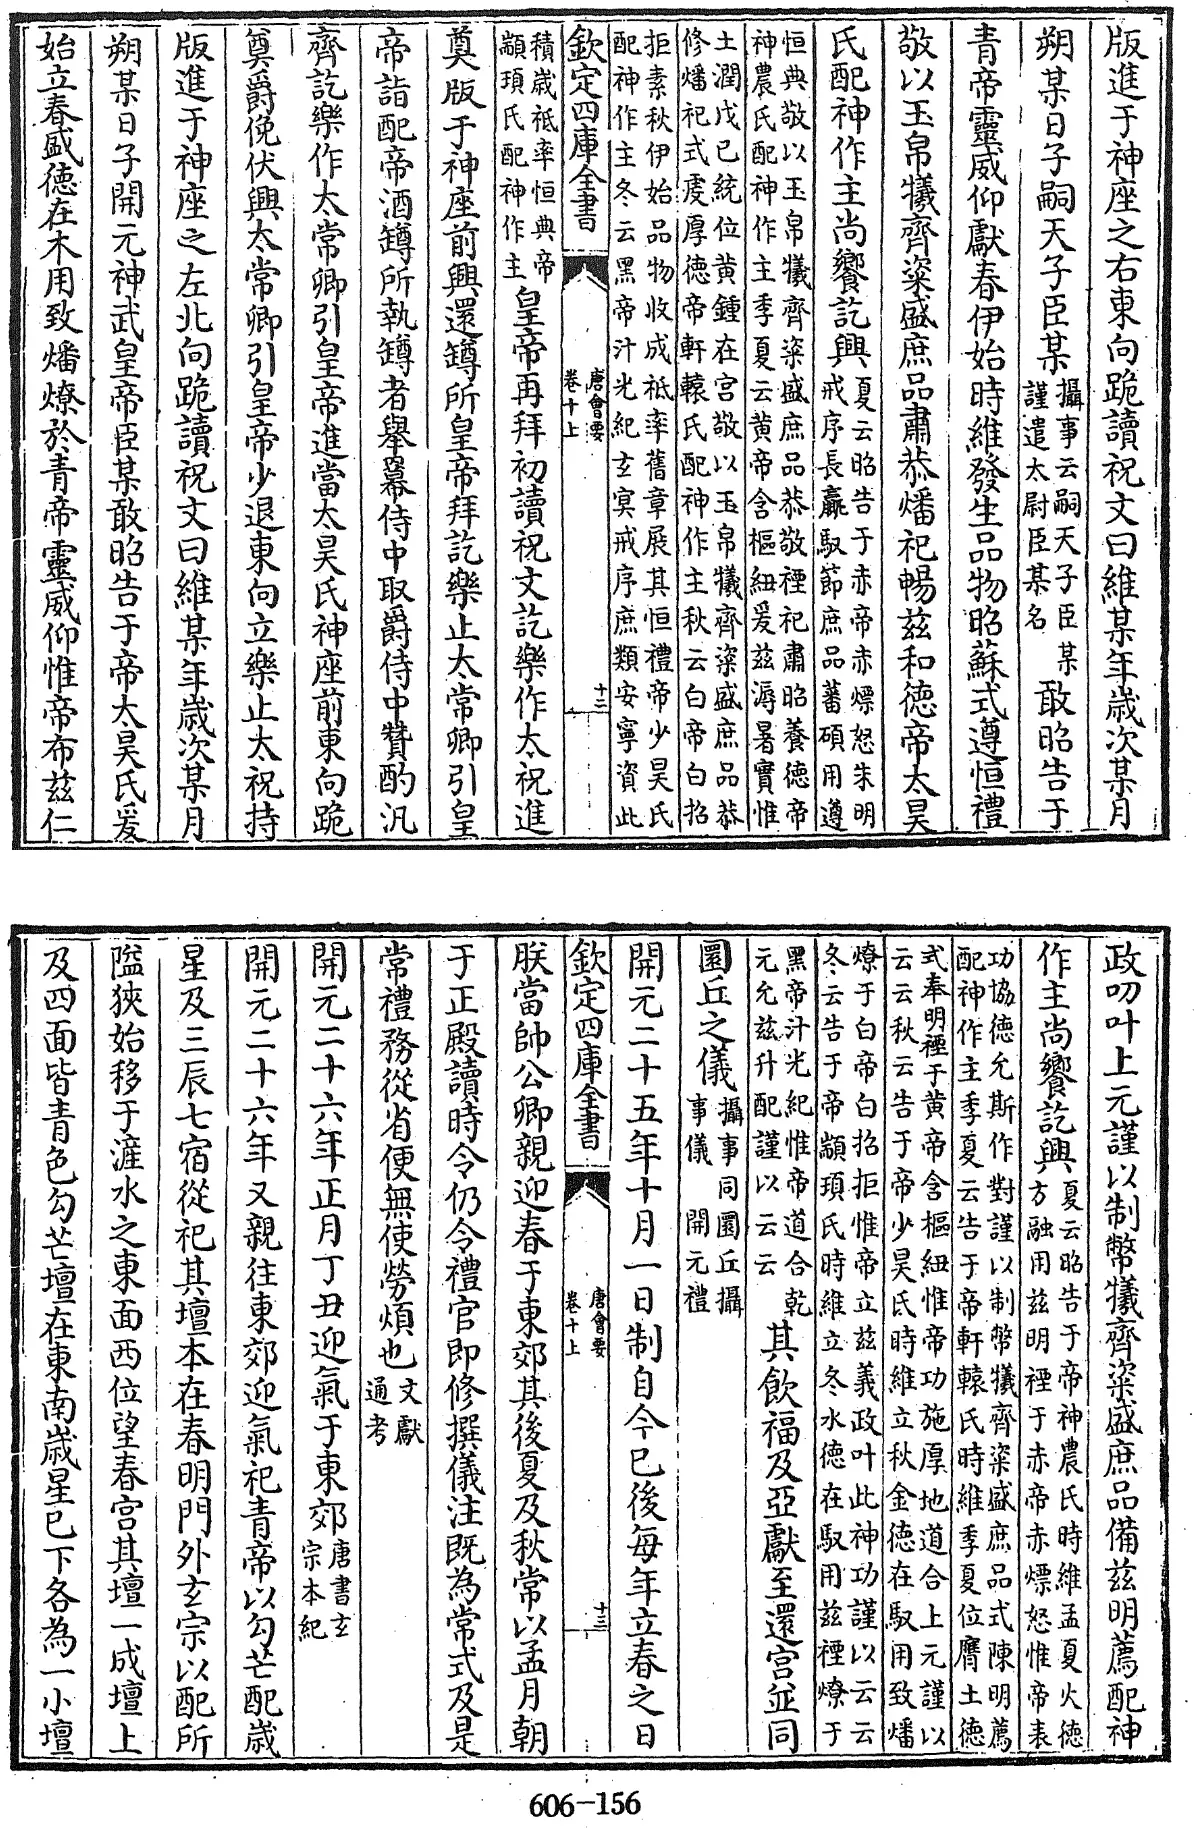 版進于神座之右東向跪讀祝文曰維某年歳次某月
朔某日子嗣天子臣某攝事云嗣天子臣某謹遣太尉臣某名敢昭告于
青帝靈威仰獻春伊始時維發生品物昭蘇式遵恒禮
敬以玉帛犧齊粢盛庶品肅恭燔祀暢兹和徳帝太昊
氏配神作主尚饗訖興夏云昭告于赤帝赤熛怒朱明戒序長嬴馭節庶品蕃碩用遵
恒典敬以玉帛犧齊粢盛庶品恭敬禋祀肅昭養徳帝神農氏配神作主季夏云黄帝含樞紐爰兹溽暑實惟
土潤戊已統位黄鍾在宫敬以玉帛犧齊粢盛庶品恭修燔祀式虔厚徳帝軒轅氏配神作主秋云白帝白招
拒素秋伊始品物收成祗率舊章展其恒禮帝少昊氏配神作主冬云黑帝汁光紀玄冥戒序庶類安寧資此
欽定四庫全書 唐會要卷十上 十二
積歳祗率恒典帝顓頊氏配神作主皇帝再拜初讀祝文訖樂作太祝進
奠版于神座前興還罇所皇帝拜訖樂止太常卿引皇
帝詣配帝酒罇所執罇者舉羃侍中取爵侍中贊酌汎
齊訖樂作太常卿引皇帝進當太昊氏神座前東向跪
奠爵俛伏興太常卿引皇帝少退東向立樂止太祝持
版進于神座之左北向跪讀祝文曰維某年歳次某月
朔某日子開元神武皇帝臣某敢昭告于帝太昊氏爰
始立春盛徳在木用致燔燎於青帝靈威仰惟帝布兹仁
政叨叶上元謹以制幣犧齊粢盛庶品備兹明薦配神
作主尚饗訖興夏云昭告于帝神農氏時維孟夏火徳方融用兹明禋于赤帝赤熛怒惟帝表
功協徳允斯作對謹以制幣犧齊粢盛庶品式陳明薦配神作主季夏云告于帝軒轅氏時維季夏位膺土徳
式奉明禋于黄帝含樞紐惟帝功施厚地道合上元謹以云云秋云告于帝少昊氏時維立秋金徳在馭用致燔
燎于白帝白招拒惟帝立兹義政叶此神功謹以云云冬云告于帝顓頊氏時維立冬水徳在馭用兹禋燎于
黑帝汁光紀惟帝道合乾元允兹升配謹以云云其飲福及亞獻至還宫並同
圜丘之儀攝事同圜丘攝事儀 開元禮
開元二十五年十月一日制自今已後每年立春之日
欽定四庫全書 唐會要卷十上 十三
朕當帥公卿親迎春于東郊其後夏及秋常以孟月朝
于正殿讀時令仍令禮官即修撰儀注既為常式及是
常禮務從省便無使勞煩也文獻通考
開元二十六年正月丁丑迎氣于東郊唐書玄宗本紀
開元二十六年又親往東郊迎氣祀青帝以勾芒配歳
星及三辰七宿從祀其壇本在春明門外玄宗以配所
隘狹始移于滻水之東面西位望春宫其壇一成壇上
及四面皆青色勾芒壇在東南歳星已下各為一小壇
606-156